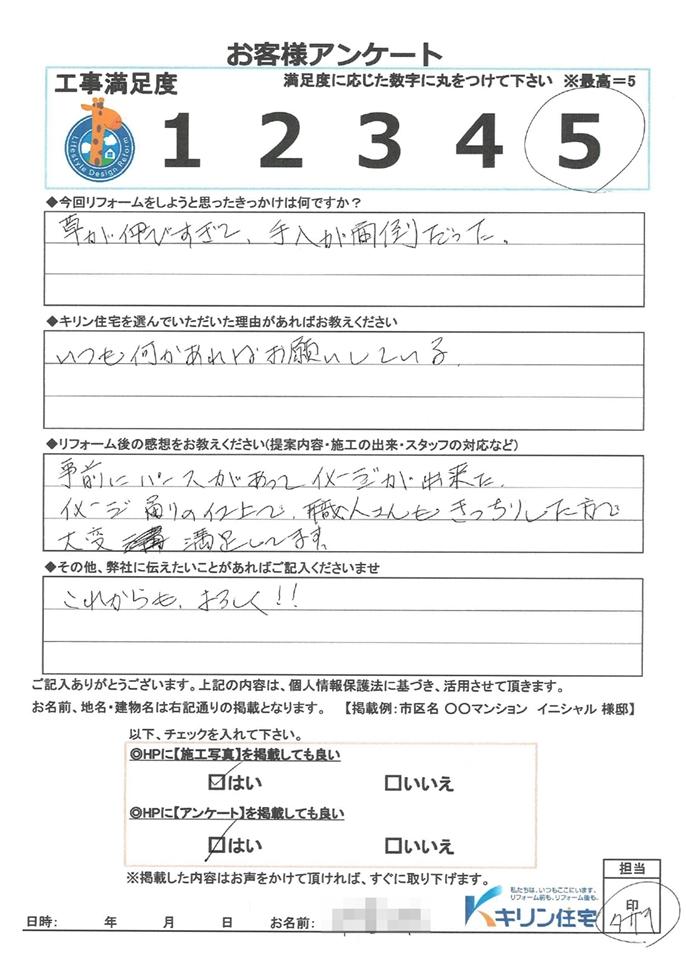 お客様アンケート
工事満足度 満足度に応じた数字に丸をつけて下さい ※最高=5
Lifestyle Design Reform
1 2 3 4 5
◆今回リフォームをしようと思ったきっかけは何ですか?
草が伸びすぎて、手入が面倒だった。
◆キリン住宅を選んでいただいた理由があればお教えください
いつも何かあればお願いしている。
◆リフォーム後の感想をお教えください(提案内容・施工の出来・スタッフの対応など)
事前にパースがあってイメージが出来た。
イメージ通りの仕上で、職人さんもきっちりした方で
大変 満足してます。
◆その他、弊社に伝えたいことがあればご記入くださいませ
これからも、よろしく!!
ご記入ありがとうございます。上記の内容は、個人情報保護法に基づき、活用させて頂きます。
お名前、地名・建物名は右記通りの掲載となります。 【掲載例:市区名 〇〇マンション イニシャル 様邸】
以下、チェックを入れて下さい。
◎HPに【施工写真】を掲載しても良い
☑はい □いいえ
◎HPに【アンケート】を掲載しても良い
☑はい □いいえ
※掲載した内容はお声をかけて頂ければ、すぐに取り下げます。
担当
私たちは、いつもここにいます。
リフォーム前も、リフォーム後も。
キリン住宅
印
日時: 年 月 日 お名前: